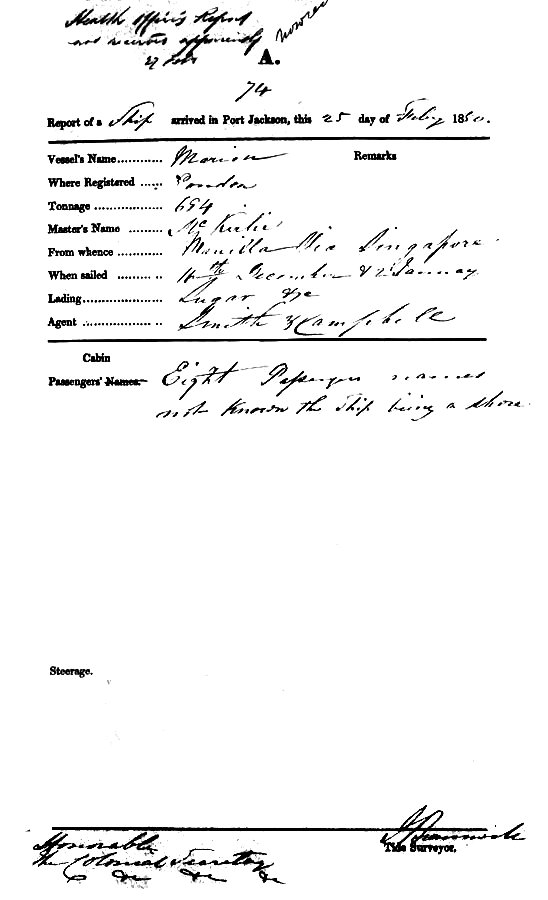 Health Officer's Report
not received apparently
27 Feb
A.
74
Report of a Ship arrived in Port Jackson, this 25 day of Feby 1850.
Vessel's Name............ Marion Remarks
Where Registered ...... London
Tonnage .................. 694
Master's Name ......... McKirlie
From whence ............ Manilla Via Singapore
When sailed ......... .. 16th December & 2 January
Lading..................... Sugar &c
Agent ..................... Smith & Campbell
Cabin
Passengers' Names.— Eight Passengers names
not known the ship being a shore
Steerage.
Tide Surveyor.
Honorable
The Colonial Secretary
&c &c &c